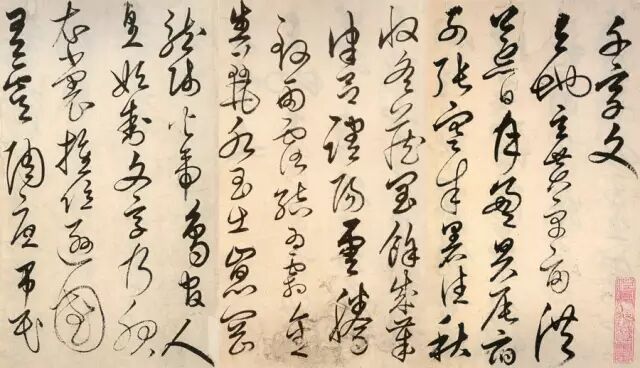 千字文
天地玄黄宇宙洪
荒日月盈昃辰宿
列張寒来暑往秋
收冬藏閏餘成歲
律呂調陽雲騰
致雨露結為霜金
生麗水玉出崑岡
龍師火帝鳥官人
皇始制文字乃服
衣裳推位遜國
有虞陶唐弔民